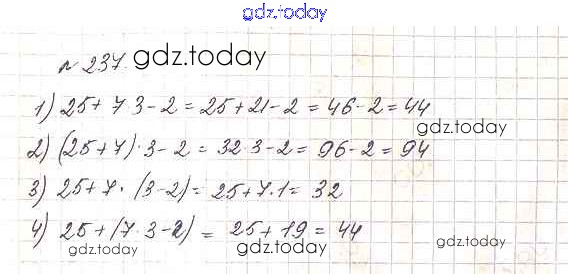 gdz.today
№ 237. gdz.today
1) 25 + 7 3 - 2 = 25 + 21 - 2 = 46 - 2 = 44
gdz.today
2) (25 + 7) · 3 - 2 = 32 · 3 - 2 = 96 - 2 = 94
3) 25 + 7 · (3 - 2) = 25 + 7 · 1 = 32
4) 25 + (7 · 3 - 2) = 25 + 19 = 44
gdz.today gdz.today gdz.today